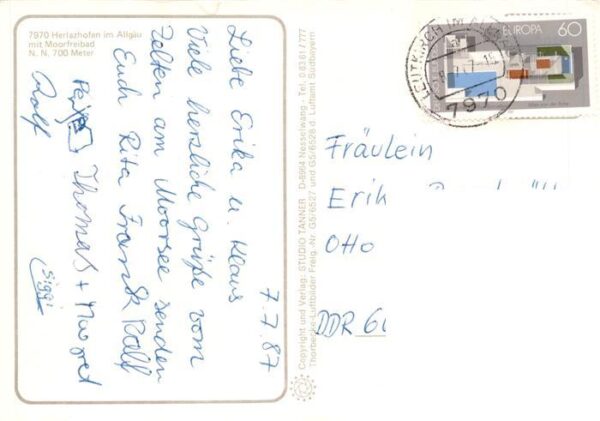 7970 Herlazhofen im Allgäu
mit Moorfreibad
N. N. 700 Meter
7.7.87
Liebe Erika u. Klaus
Viele herzliche Grüße vom
Zelten am Moorsee senden
Euch Rita Frank Ralf
Thomas + Margret
Rolf
Siggi
Copyright und Verlag: STUDIO TANNER D-8964 Nesselwang - Tel. 0 83 61 / 777
Thorbecke-Luftbilder Freig.-Nr. G5/6527 und G5/6528 d. Luftamt Südbayern
LEUTKIRCH IM
7970
EUROPA 60
Fräulein
Erik
Otto
DDR